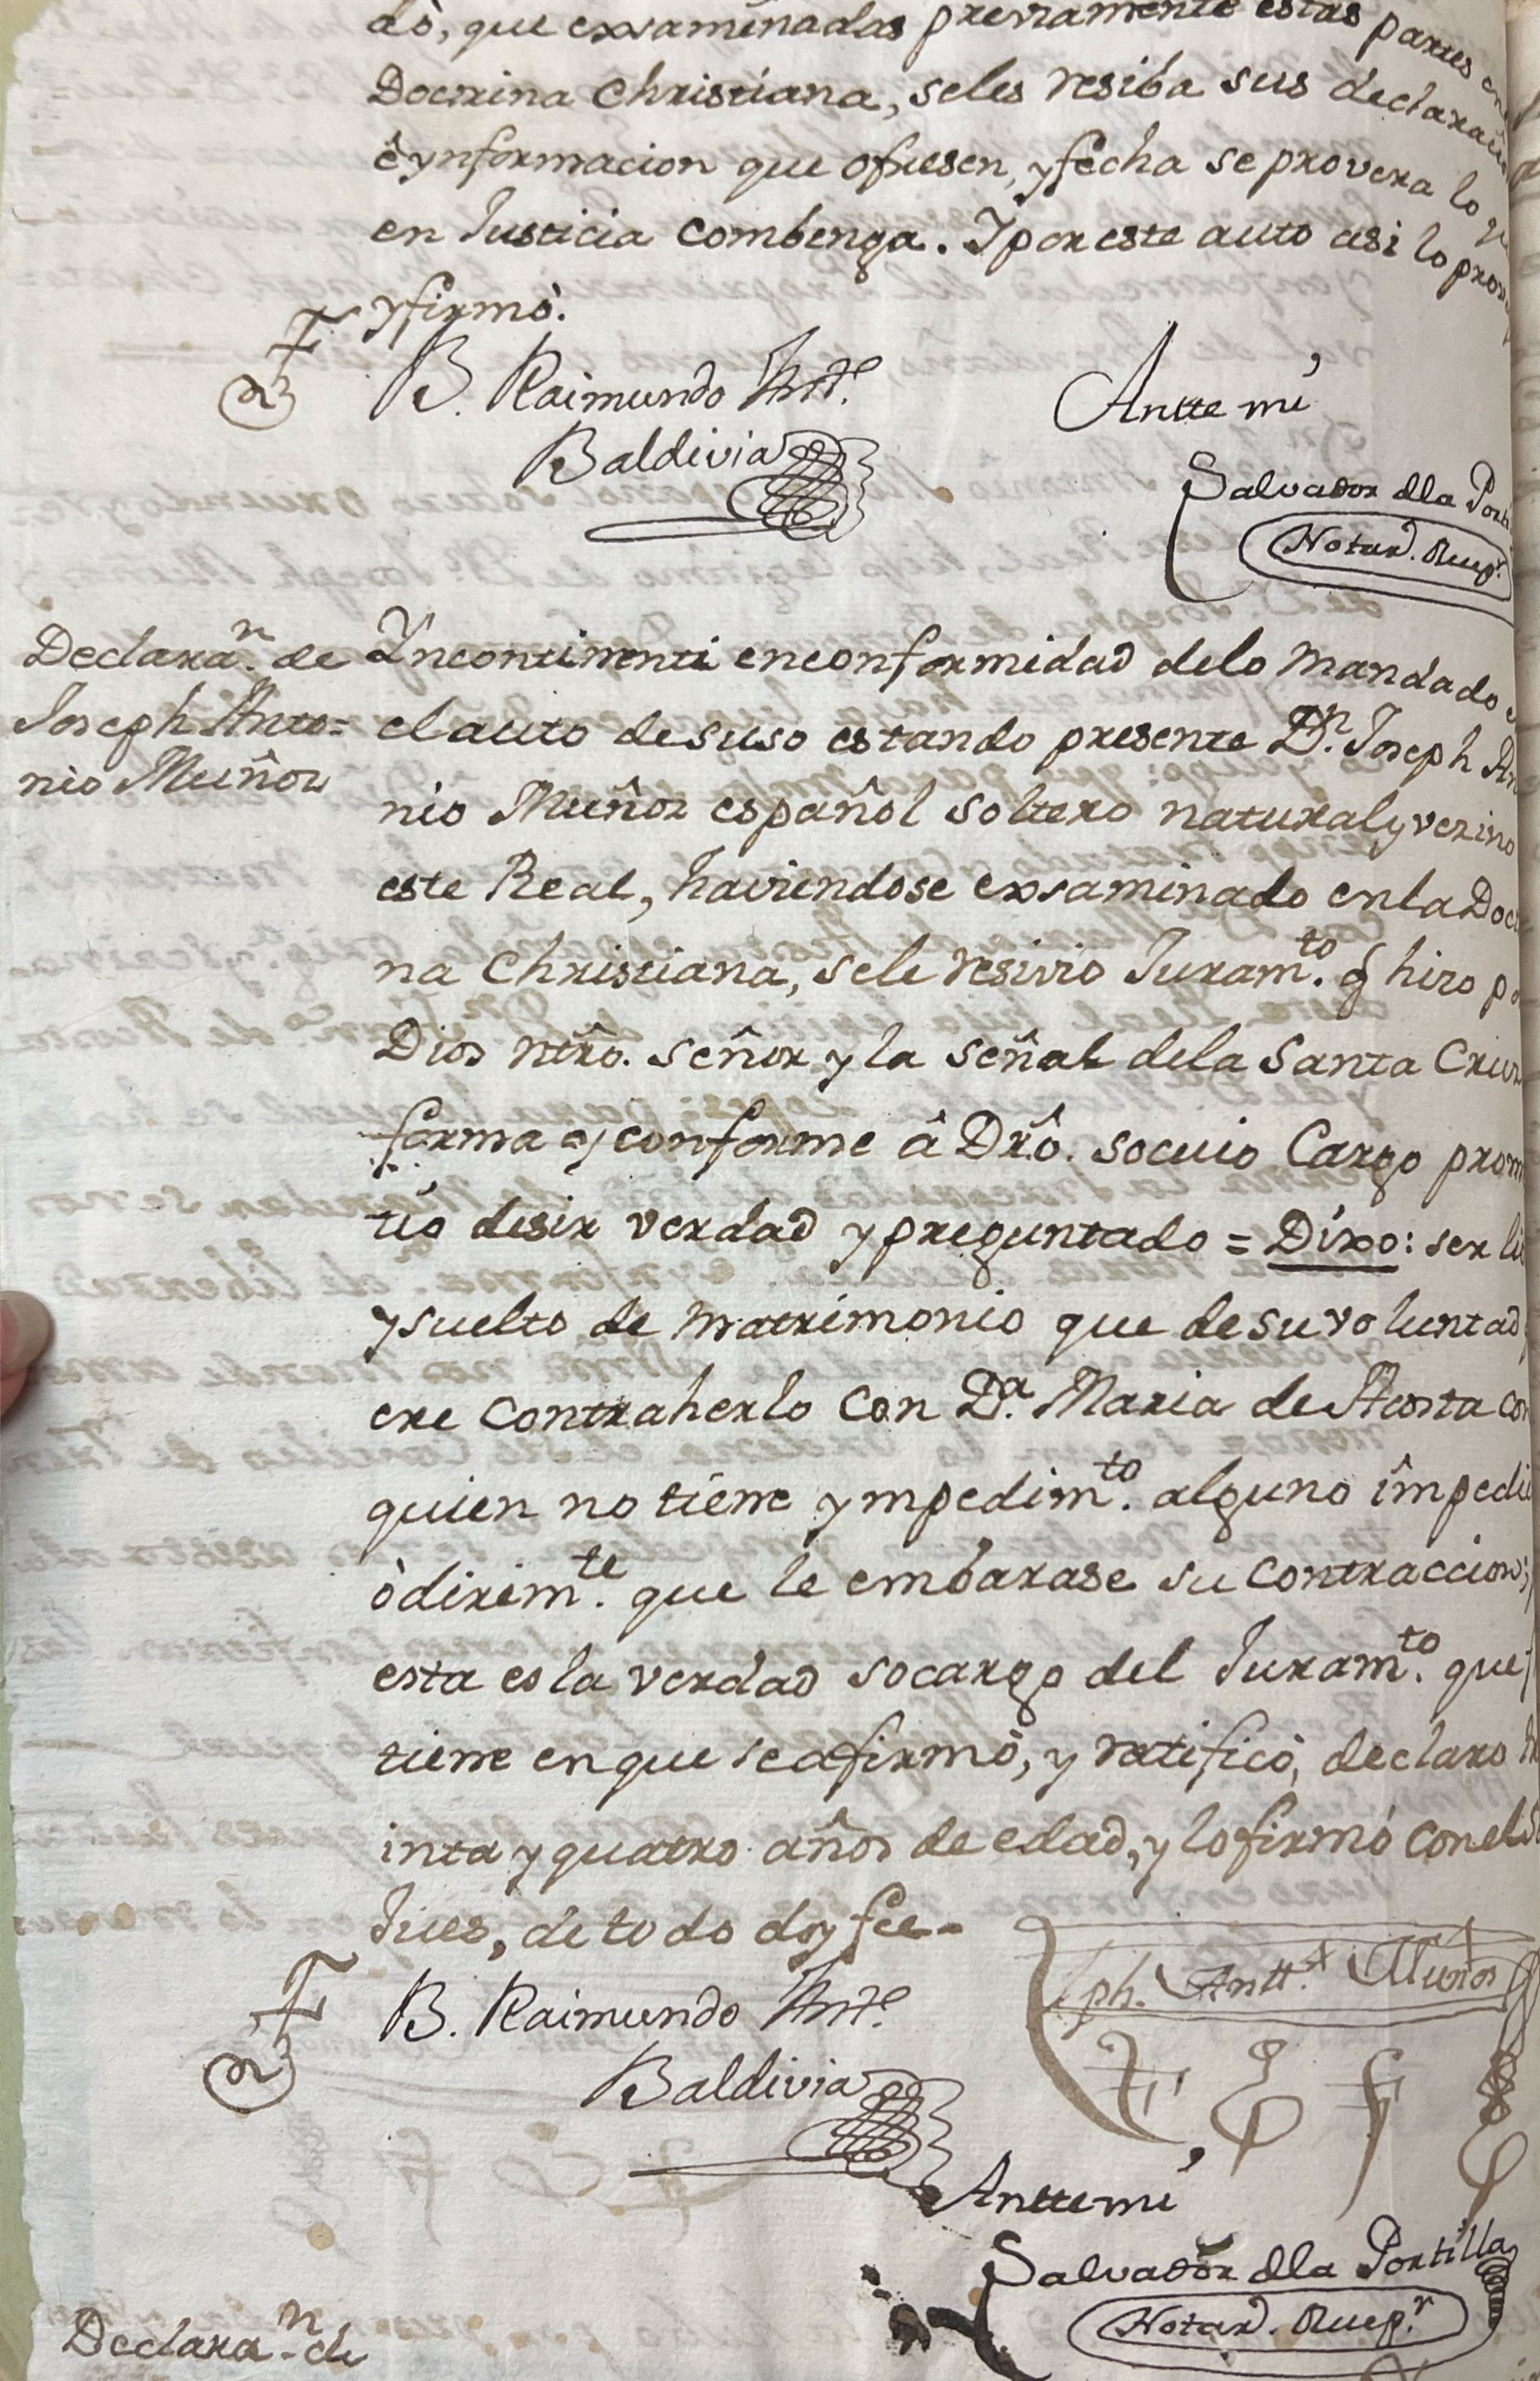 do, que exsaminadas previamente estas partes en
Doctrina Christiana, seles resiba sus declaracio
è ynformacion que ofresen, y fecha se provera lo q
en Justicia combenga. I por este auto asi lo prov
y firmò.
B. Raimundo Antº.
Baldivia
Antte mi
Salvador dla Porti
Notarº. Recepʳ.
Declaraⁿ. de
Joseph Anto=
nio Muñoz
Yncontinenti enconformidad delo mandado
el auto desuso estando presente Dⁿ. Joseph An
nio Muñoz español soltero natural y vezino
este Real, haviendose exsaminado en la Doc
na Christiana, sele resivio Juramᵗᵒ. q̃ hizo po
Dios ntrô. señor y la señal dela Santa Cruz
forma y conforme â Drô. socuio Cargo prom
tio desir verdad y preguntado = Dixo: ser li
y suelto de matrimonio que de su voluntad
ere contraherlo con Dᵃ. Maria de Acosta con
quien no tiene ympedimᵗᵒ. alguno împedi
ò dirimᵗᵉ. que le embarase su contraccion,
esta es la verdad socargo del Juramᵗᵒ. que
tiene enque se afirmò, y ratificò, declaro
inta y quatro años de edad, y lo firmó con el
Jues, de todo doy fee-
B. Raimundo Antº.
Baldivia
Jph. Anttº. Muñoz
Anttemi
Salvador dla Portilla
Notarº. Recepʳ.
Declaraⁿ. de